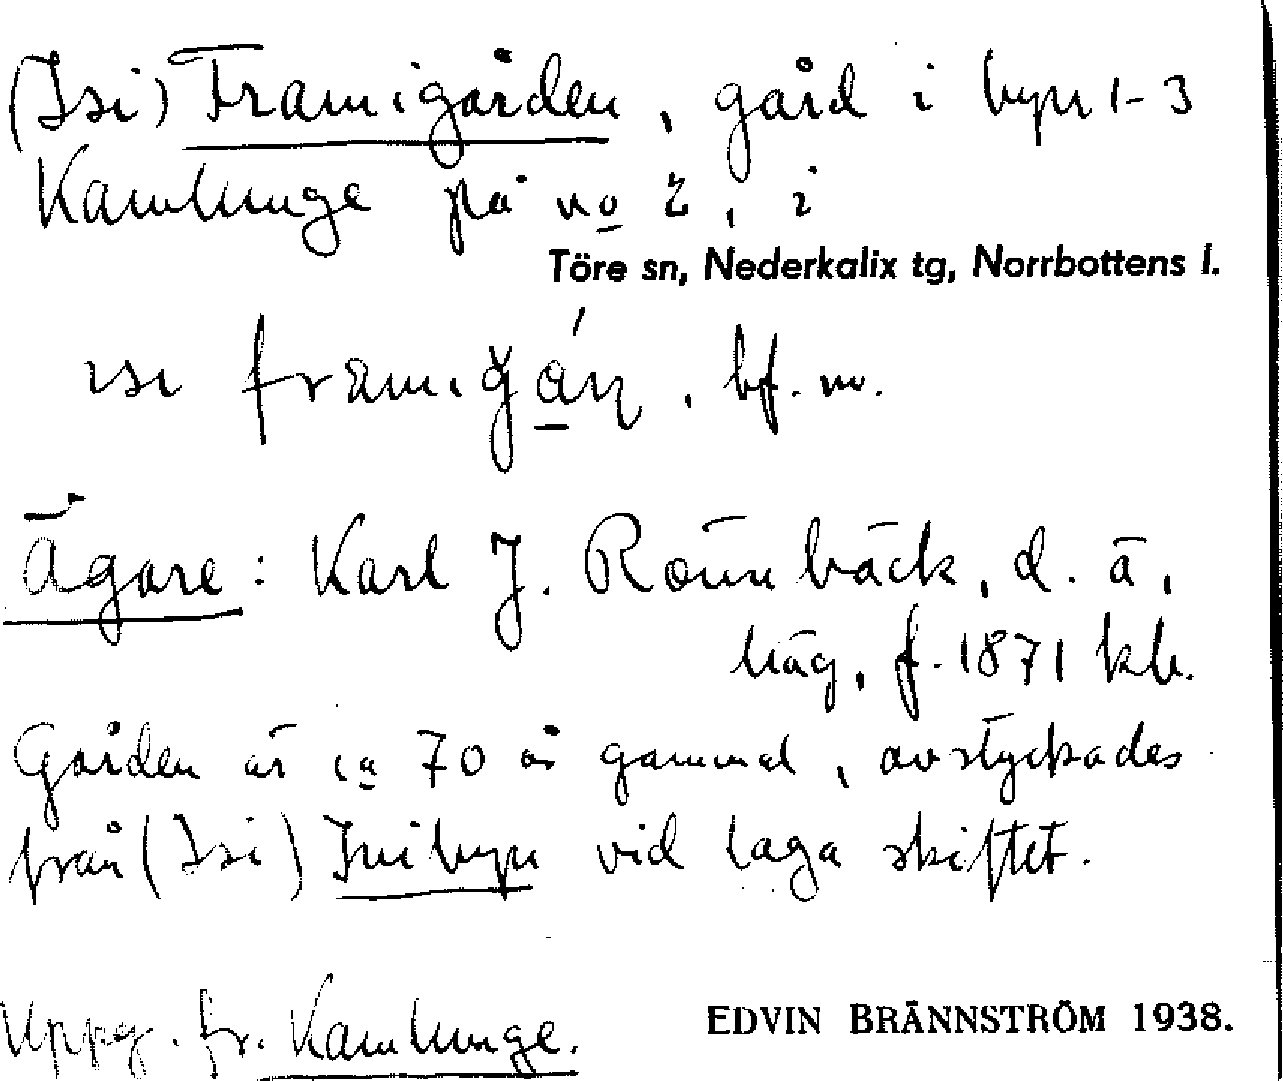 (Isi) Framigården, gård i byn 1-3
Kamlunge på no 2, i
Töre sn, Nederkalix tg, Norrbottens l.
isi bf. m.
Ägare: Karl J. Rönnbäck, d. ä,
häg, f. 1871 kb.
Gården är ca 70 år gammal, avstyckades
från (Isi) Inibyn vid laga skiftet.
Uppg. fr. Kamlunge.
EDVIN BRÄNNSTRÖM 1938.